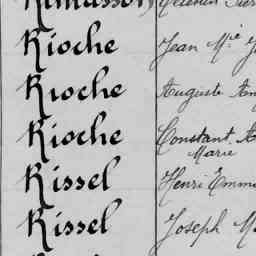 Rioche Jean Mie
Rioche Auguste
Rioche Constant
Marie
Rissel Henri
Rissel Joseph